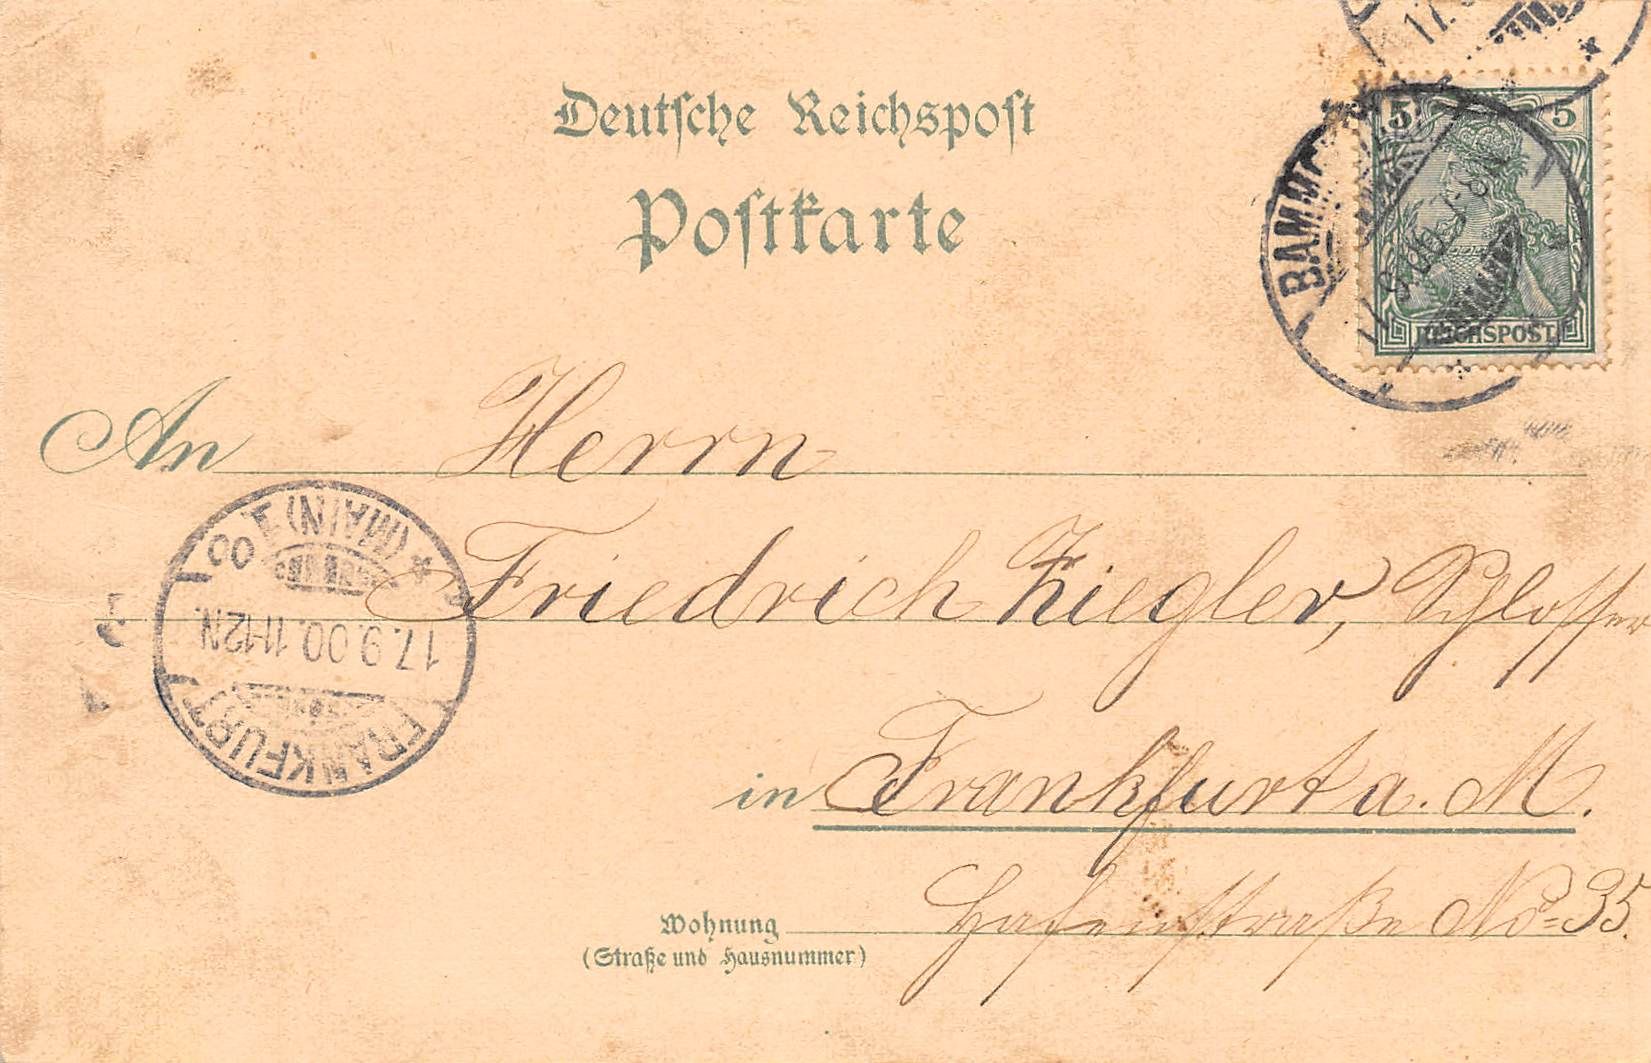 Deutsche Reichspost
Postkarte
5 5
REICHSPOST
An Herrn
Friedrich Ziegler, Schlosser
in Frankfurt a. M.
Wohnung Hafenstraße No 35.
(Straße und Hausnummer)
FRANKFURT
17.9.00.11-12N.
(MAIN) 1.
00